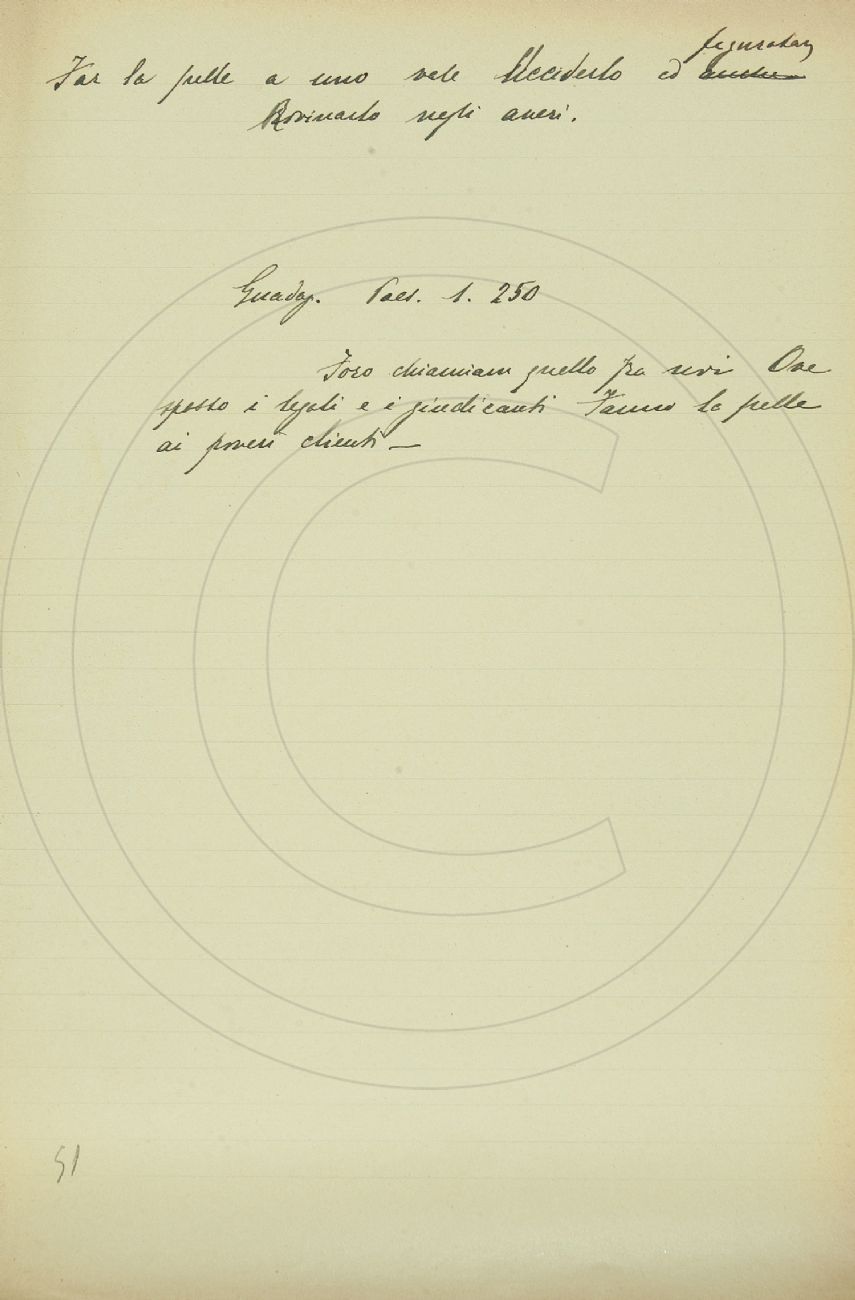 figuratam
Far la pelle a uno vale Ucciderlo ed anche
Rovinarlo negli averi.
Guadag. Poes. 1. 250
Foro chiamiam quello fra noi Ove
spesso i legali e i giudicanti Fanno la pelle
ai poveri clienti —
51